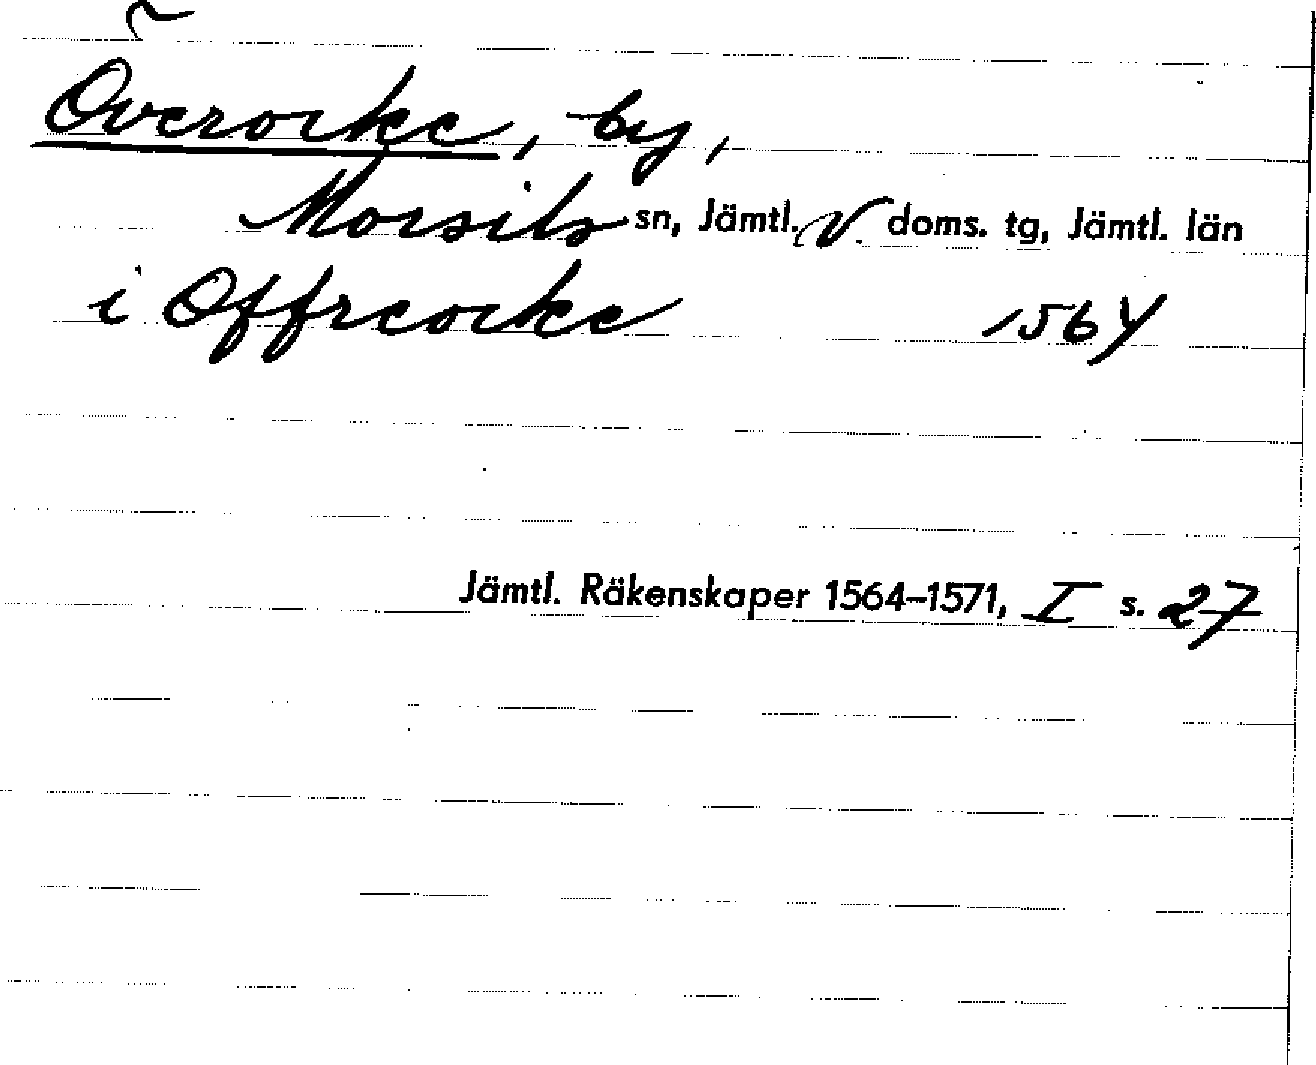 Överocke, by,
Morsils sn, Jämtl. V doms. tg, Jämtl. län
i Offreocke 1564
Jämtl. Räkenskaper 1564–1571, I s. 27